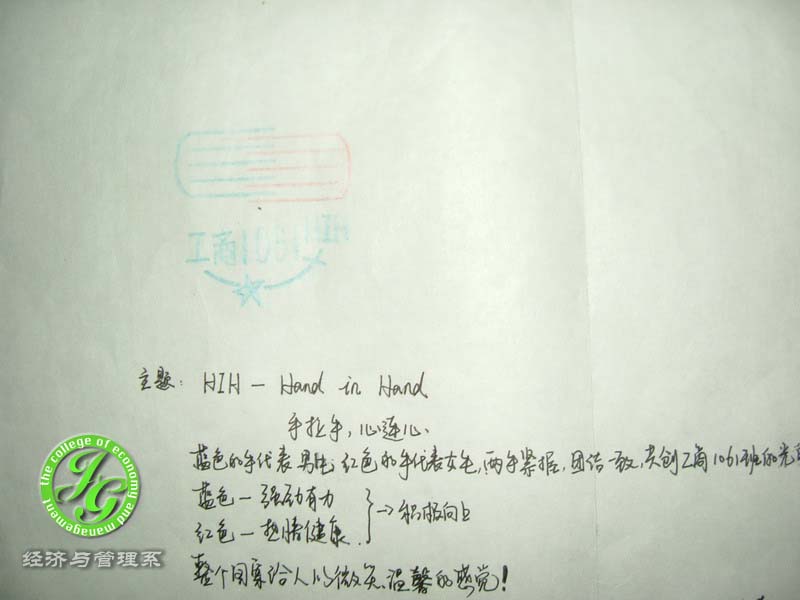 工商1061班
主题: HIH — Hand in Hand
手拉手,心连心.
蓝色的手代表男生;红色的手代表女生,两手紧握,团结一致,共创工商1061班的光
蓝色—强劲有力
红色—热情健康
}→积极向上
整个图案给人以微笑、温馨的感觉!
the college of economy and management
JG
经济与管理系